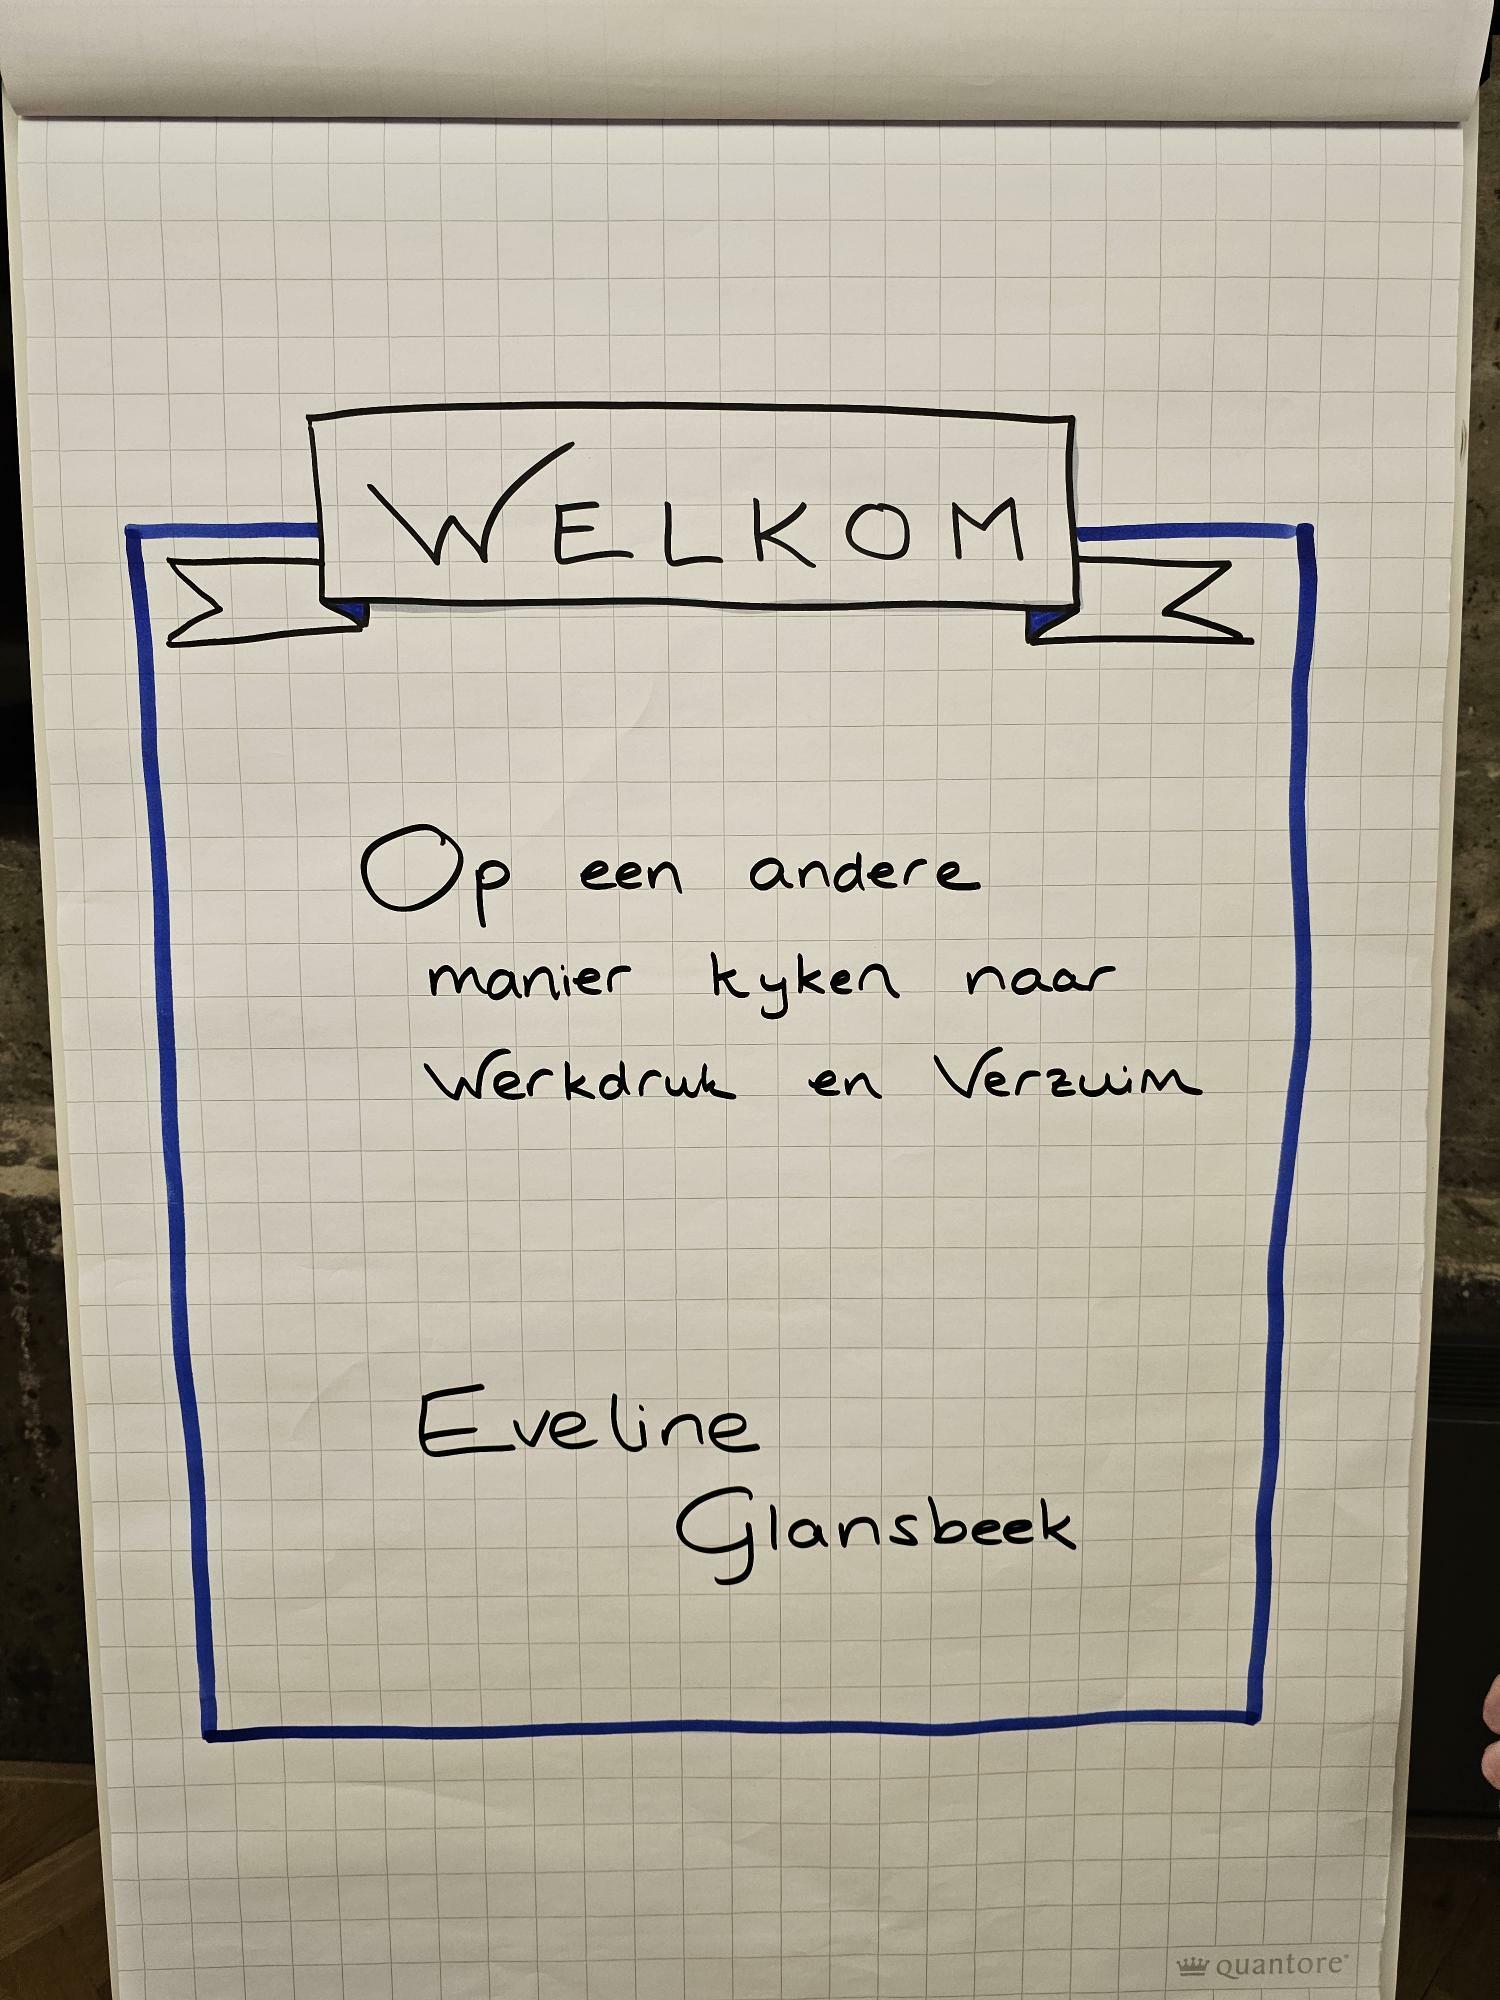 WELKOM
Op een andere
manier kyken naar
Werkdruk en Verzuim
Eveline
Glansbeek
quantore